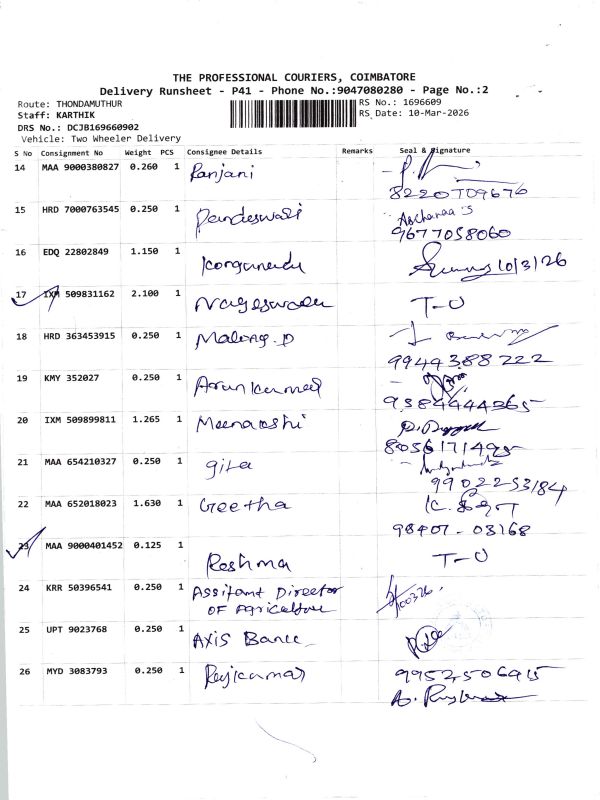 THE PROFESSIONAL COURIERS, COIMBATORE
Delivery Runsheet - P41 - Phone No.:9047080280 - Page No.:2
Route: THONDAMUTHUR
Staff: KARTHIK
DRS No.: DCJB169660902
Vehicle: Two Wheeler Delivery
RS No.: 1696609
RS Date: 10-Mar-2026
S No Consignment No Weight PCS Consignee Details Remarks Seal & Signature
14 MAA 9000380827 0.260 1 Ranjani
8220709676
15 HRD 7000763545 0.250 1 Pandeswari
9677058060
16 EDQ 22802849 1.150 1 10/3/26
17 IXM 509831162 2.100 1 Nageswaran T-O
18 HRD 363453915 0.250 1
9944388222
19 KMY 352027 0.250 1 Arunkumar
9384444365
20 IXM 509899811 1.265 1 Meenakshi
21 MAA 654210327 0.250 1 gita
9902253184
22 MAA 652018023 1.630 1 Geetha
98407-03168
23 MAA 9000401452 0.125 1 Reshma T-O
24 KRR 50396541 0.250 1 Assitant Director
OF Agriculture
25 UPT 9023768 0.250 1 Axis Bank
26 MYD 3083793 0.250 1 Rajkumar 9952506915